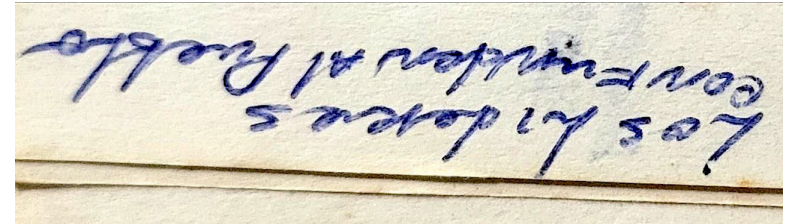 Los Lideres
Confunden al Pueblo